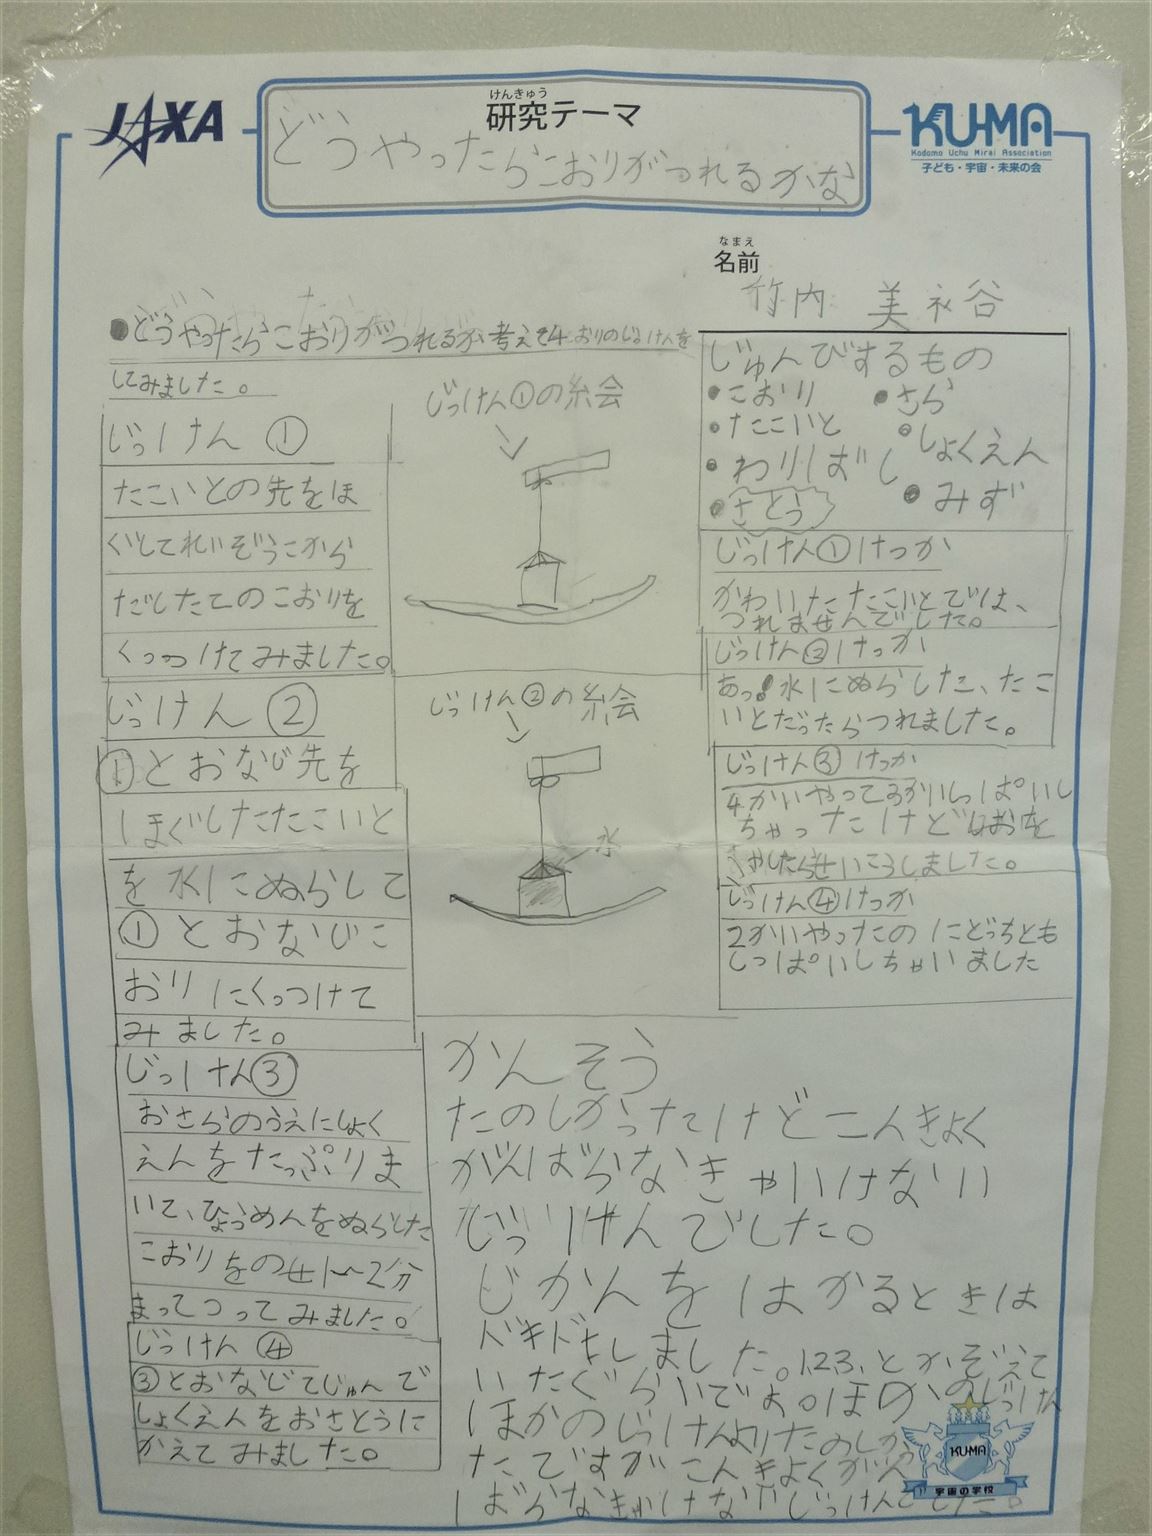 JAXA
けんきゅう
研究テーマ
どうやったらこおりがつれるかな
KU-MA
Kodomo Uchu Mirai Association
子ども・宇宙・未来の会
なまえ
名前
竹内 美衣谷
●どうやったらこおりがつれるか考えて4.おりのじっけんを
してみました。
じっけん①
たこいとの先をほ
ぐしてれいぞうこから
だしたてのこおりを
くっつけてみました。
じっけん②
①とおなじ先を
ほぐしたたこいと
を水にぬらして
①とおなじこ
おりにくっつけて
みました。
じっけん③
おさらのうえにしょく
えんをたっぷりま
いて、ひょうめんをぬらした
こおりをのせ1〜2分
まってつってみました。
じっけん④
③とおなじてじゅんで
しょくえんをおさとうに
かえてみました。
じっけん①の糸会
じっけん②の糸会
水
じゅんびするもの
●こおり ●さら
●たこいと ●しょくえん
●わりばし ●みず
●さとう
じっけん①けっか
かわいたたこいとでは、
つれませんでした。
じっけん②けっか
あっ!水にぬらした、たこ
いとだったらつれました。
じっけん③けっか
4.かいやって3かいしっぱいし
ちゃったけどしおを
ふやしたらせいこうしました。
じっけん④けっか
2かいやったのにどっちとも
しっぱいしちゃいました
かんそう
たのしかったけどこんきよく
がんばらなきゃいけない
じっけんでした。
じかんをはかるときは
ドキドキしました。123、とかぞえて
いたぐらいです。ほかのじっけん
ほかのじっけんよりたのしかっ
たですがこんきよくがん
ばらなきゃいけないじっけんでした。
KU-MA
宇宙の学校